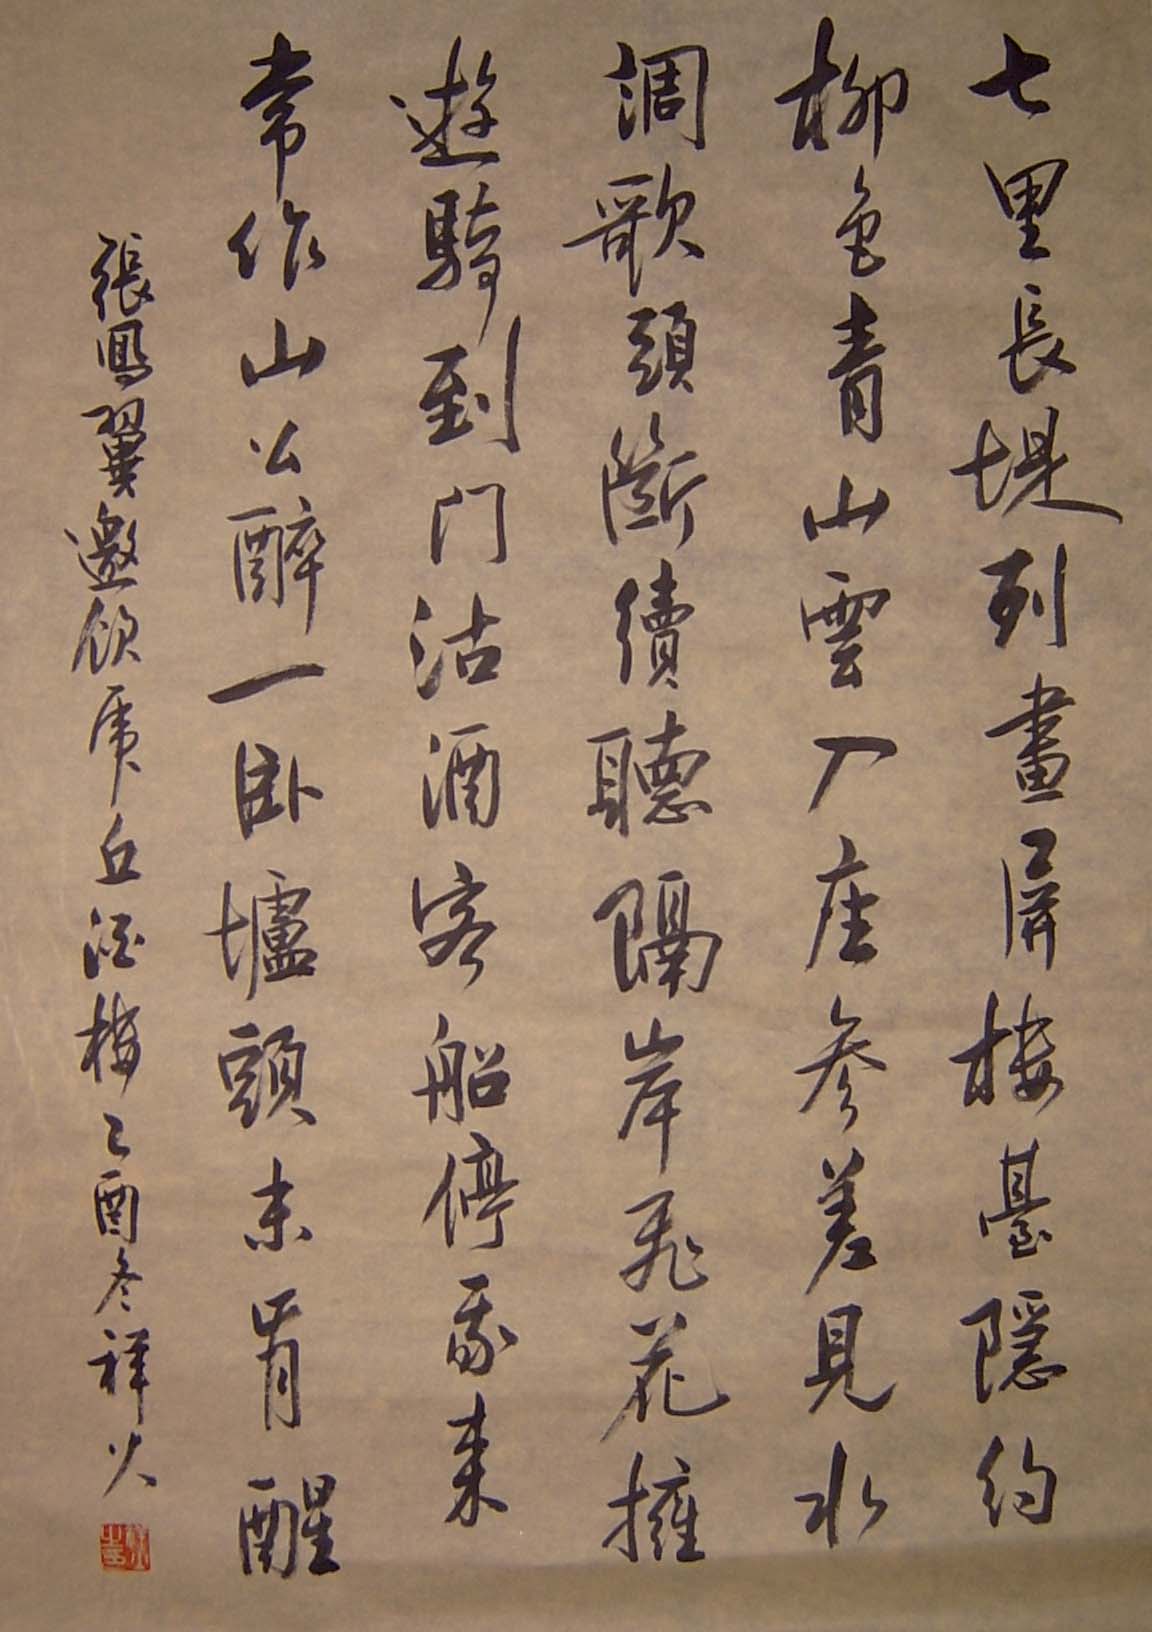 七里長堤列畫屏樓臺隱約
柳色青山雲入座參差見水
調歌頭斷續聽隔岸飛花擁
遊騎到门沽酒客船停我來
常作山公醉一卧壚頭未肯醒
張鳳翼邀飲虎丘酒樓乙酉冬祥